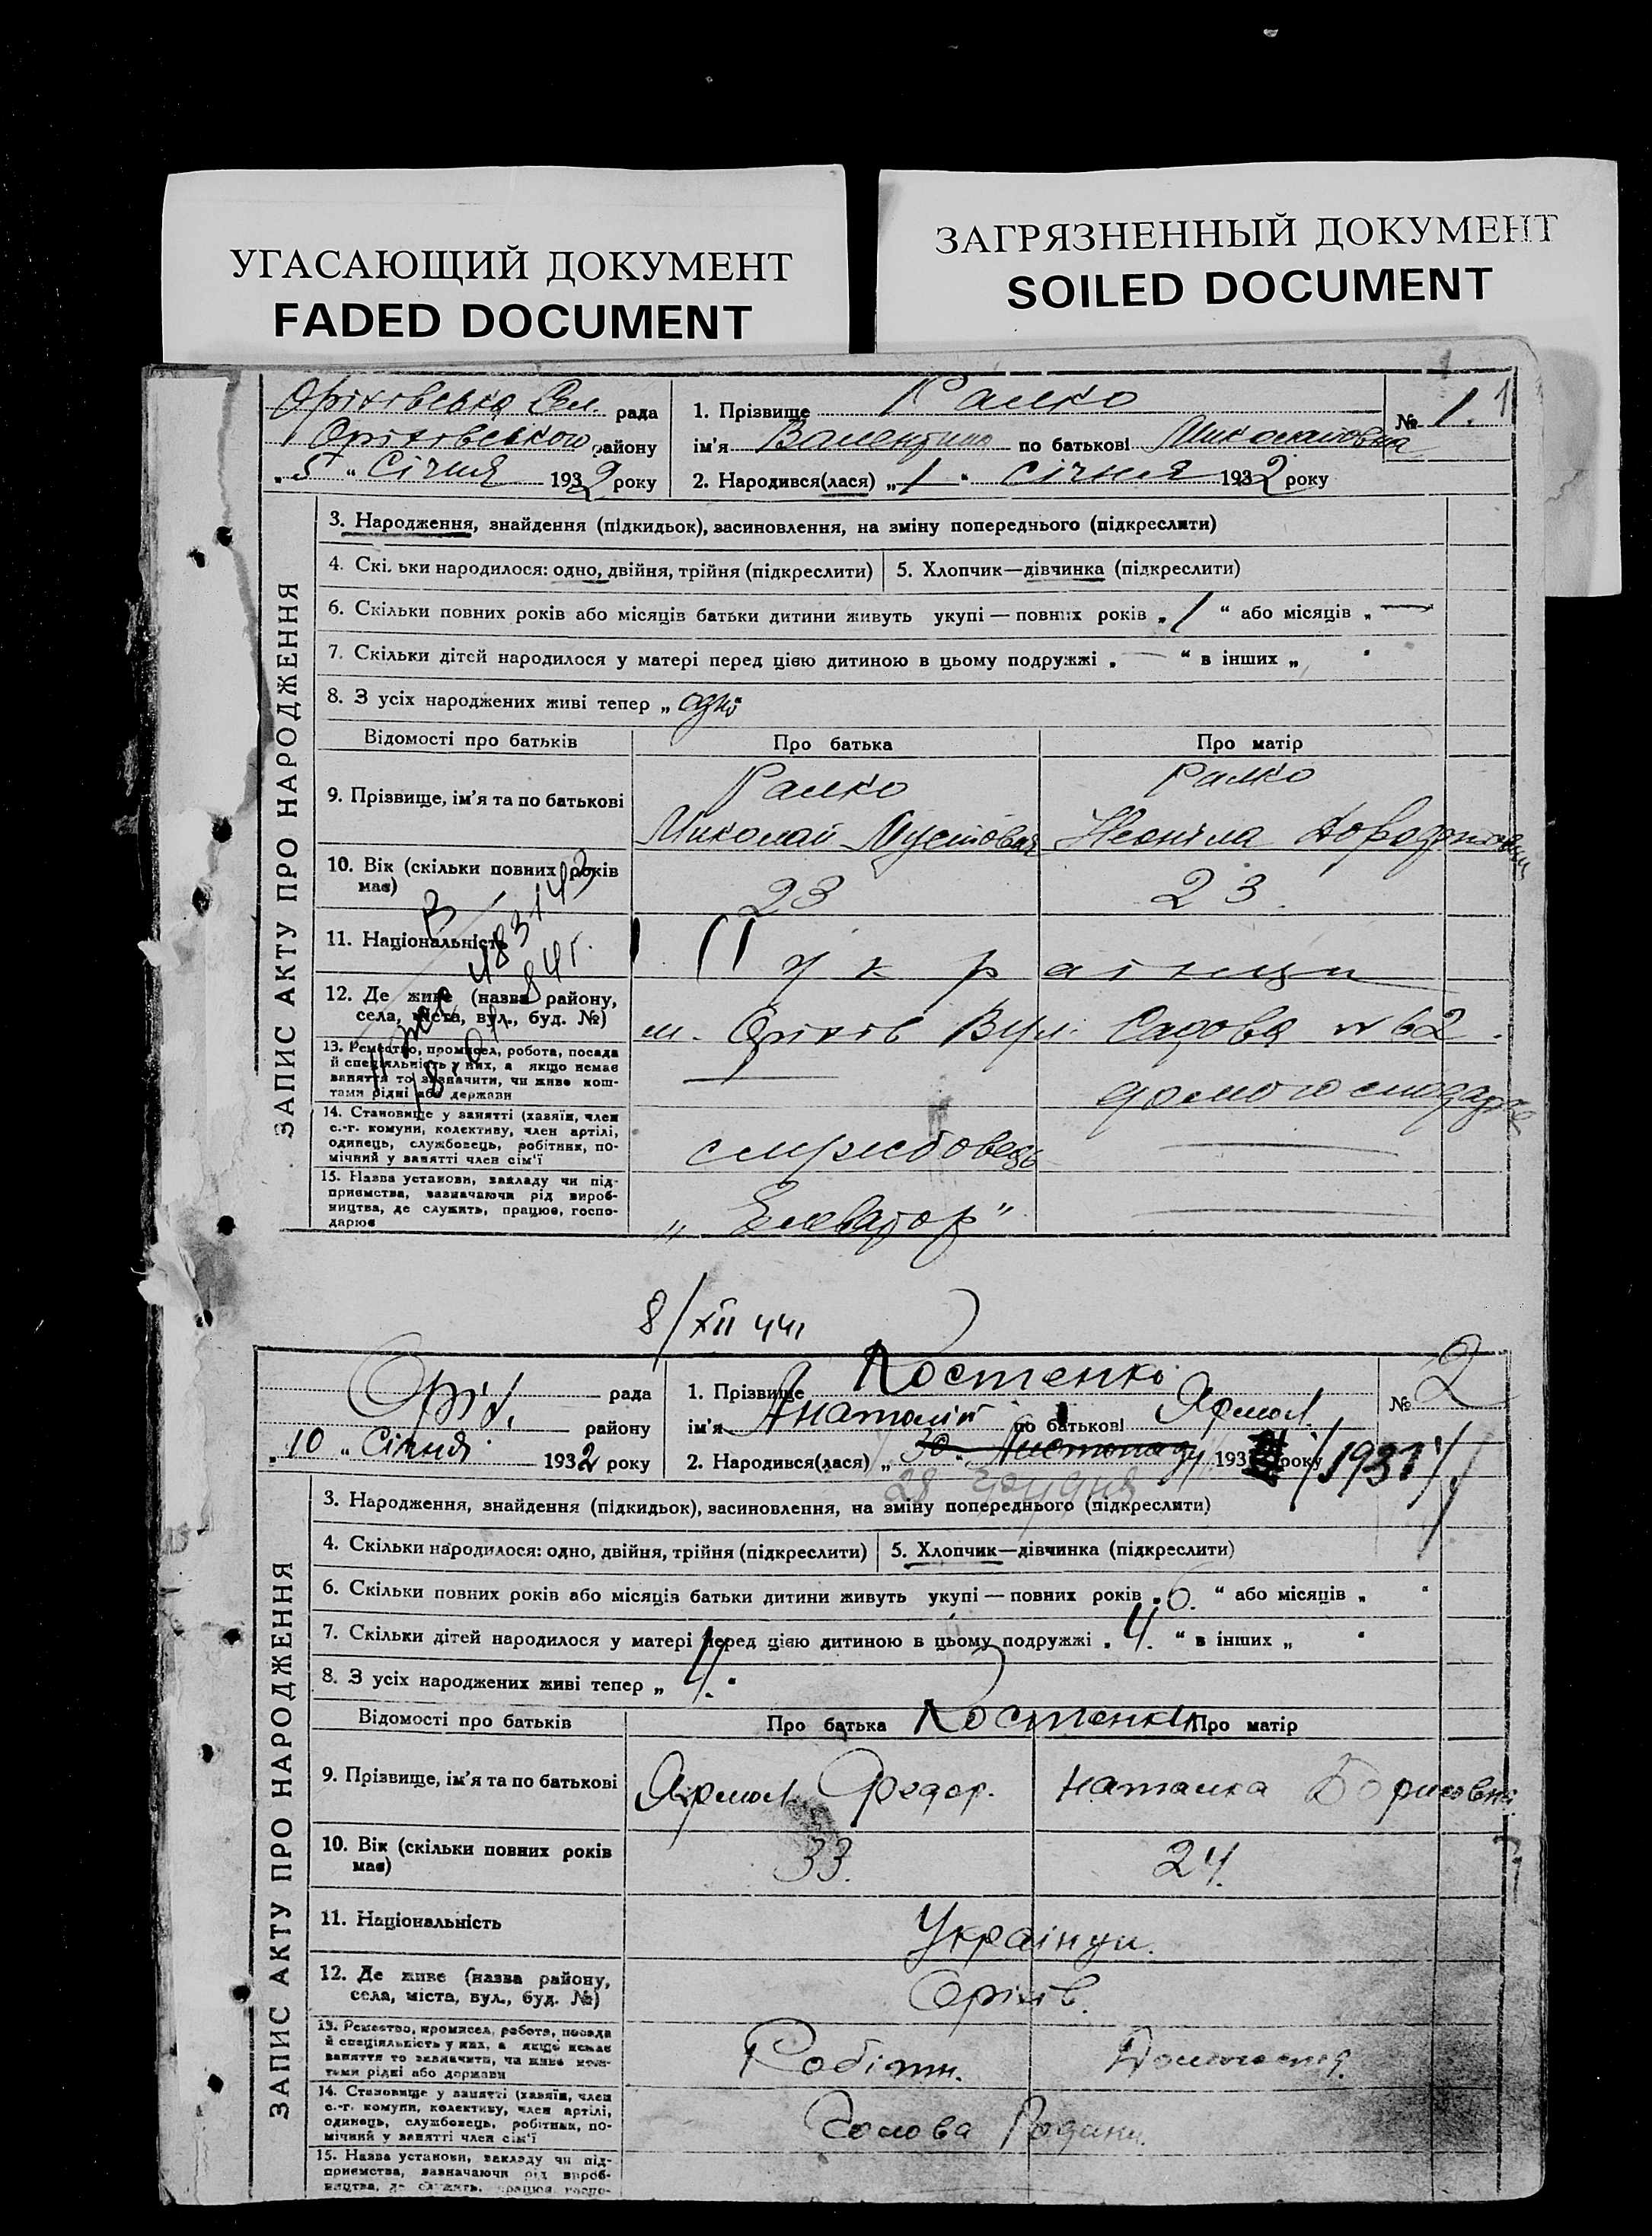 УГАСАЮЩИЙ ДОКУМЕНТ
FADED DOCUMENT
ЗАГРЯЗНЕННЫЙ ДОКУМЕНТ
SOILED DOCUMENT
Оріхівська Сел. рада
Оріхівського району
„5“ Січня 1932 року
1. Прізвище Ралко
№ 1. 1
ім'я Валентина по батькові Миколаївна
2. Народився(лася) „1“ січня 1932 року
ЗАПИС АКТУ ПРО НАРОДЖЕННЯ
3. Народження, знайдення (підкидьок), засиновлення, на зміну попереднього (підкреслити)
4. Скільки народилося: одно, двійня, трійня (підкреслити) 5. Хлопчик—дівчинка (підкреслити)
6. Скільки повних років або місяців батьки дитини живуть укупі — повних років „1“ або місяців „—
7. Скільки дітей народилося у матері перед цією дитиною в цьому подружжі „—“ в інших „ “
8. З усіх народжених живі тепер „одно“
Відомості про батьків Про батька Про матір
9. Прізвище, ім'я та по батькові
Ралко Ралко
Миколай Неоніла
10. Вік (скільки повних років має) 23 23.
11. Національність українци
12. Де живе (назва району, села, міста, вул., буд. №) м. Оріхів Вул. Садова № 62.
13. Ремество, промисел, робота, посада й спеціяльність у них, а якщо немає заняття то зазначити, чи живе коштами рідні або держави —
14. Становище у занятті (хазяїн, член с.-г. комуни, колективу, член артілі, одинець, службовець, робітник, помічний у занятті член сім'ї службовець —
15. Назва установи, закладу чи підприємства, зазначаючи рід виробництва, де служить, працює, господарює „Елеватор“ —
8/XII 44
Оріх. рада
району
„10“ Січня 1932 року
1. Прізвище Костенко
№ 2
ім'я Анатолій по батькові Ярмол.
2. Народився(лася) „30“ Листопаду 193 року /1931/
28 грудня
ЗАПИС АКТУ ПРО НАРОДЖЕННЯ
3. Народження, знайдення (підкидьок), засиновлення, на зміну попереднього (підкреслити)
4. Скільки народилося: одно, двійня, трійня (підкреслити) 5. Хлопчик—дівчинка (підкреслити)
6. Скільки повних років або місяців батьки дитини живуть укупі — повних років „6.“ або місяців „ “
7. Скільки дітей народилося у матері перед цією дитиною в цьому подружжі „4.“ в інших „ “
8. З усіх народжених живі тепер „4.“
Відомості про батьків Про батька Про матір
Костенки
9. Прізвище, ім'я та по батькові Ярмол. Федор. Наталка Борисовна
10. Вік (скільки повних років має) 33. 24.
11. Національність Українци.
12. Де живе (назва району, села, міста, вул., буд. №) Оріхів.
13. Ремество, промисел, робота, посада й спеціяльність у них, а якщо немає заняття то зазначити, чи живе коштами рідні або держави Робітн.
14. Становище у занятті (хазяїн, член с.-г. комуни, колективу, член артілі, одинець, службовець, робітник, помічний у занятті член сім'ї Голова Родини.
15. Назва установи, закладу чи підприємства, зазначаючи рід виробництва, де служить, працює, госпо-